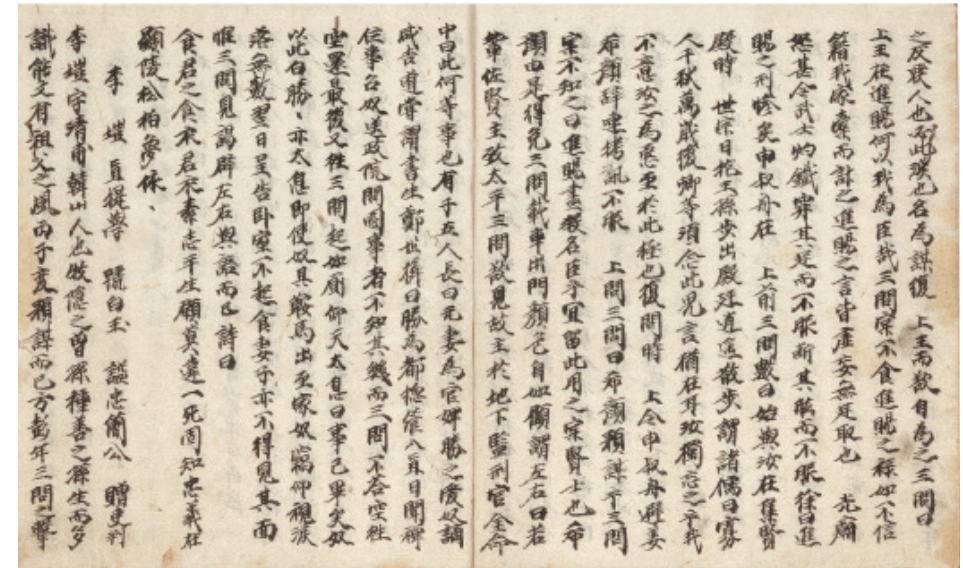 之反人也此也名為謀復 上王而欲自為之三問曰
上王在進賜何以我為臣哉三問實不食進賜之祿如不信
籍我家橐而計之進賜之言皆虛妄無足取也 光廟
怒甚令武士灼鐵穿其足而不服斷其肱而不服徐曰進
賜之刑慘矣申叔舟在 上前三問數曰始與汝在集賢
殿時 世宗日抱王孫步出殿廷逍遙散步謂諸儒曰寡
人千秋萬歲後卿等須念此兒言猶在耳汝獨忘之乎我
不意汝之為惡至於此極也復問時 上令申叔舟避姜
希顏辭連拷訊不服 上問三問曰希顏預謀乎三問
實不知之曰進賜盡殺名臣乎宜留此用之實賢士也希
顏由是得免三問載車出門顏色自如顧謂左右曰若
等佐賢主致太平三問歸見故主於地下監刑官金命
中曰此何等事也有子五人長曰元妻為官婢勝之奴
成吉道嘗謂書生鄭世曰勝為都摠入直日聞禪
位事召奴送政院問國事者不知其幾而三問不答空往
空還最後又往三問起如廁仰天太息曰事已畢矣奴
以此白勝亦太息即使奴具鞍馬出至家奴竊仰視淚
落無數翌日呈告臥室不起食妻子亦不得見其面
惟三問見謁辟左右與語而已詩曰
食君之食衣君衣素志平生願莫違一死固知忠義在
顯陵松柏夢依、
李 塏 直提學 號白玉 諡忠簡公 贈吏判
李塏字清甫韓山人也牧隱之曾孫種善之孫生而多
識能文有祖父之風丙子變預謀而已方彭年三問之擊